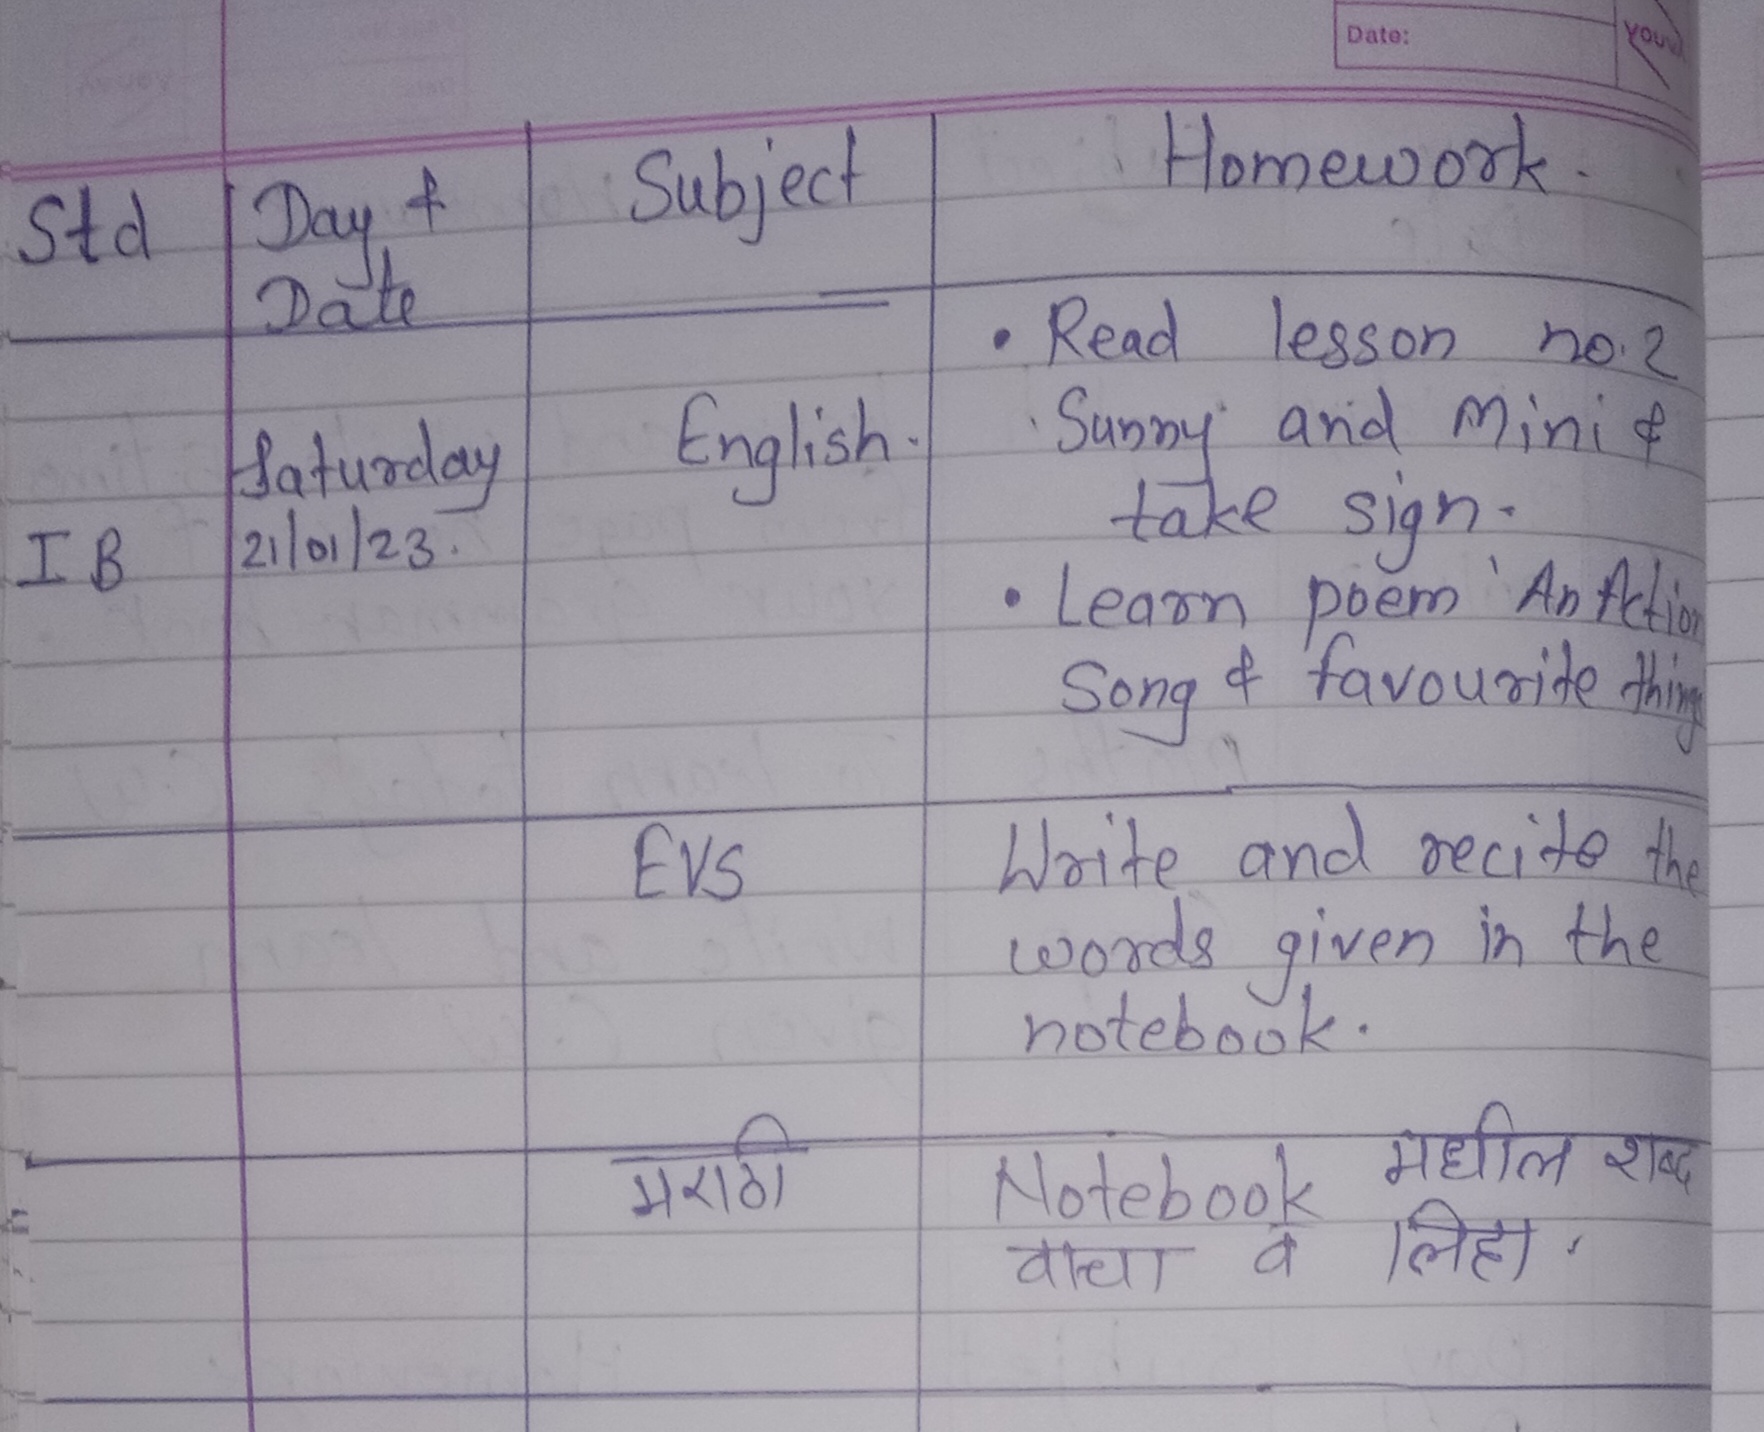 Date:
Std Day & Subject Homework.
Date
• Read lesson no.2
Saturday English. Sunny and Mini &
take sign.
I B 21/01/23.
• Learn poem 'An Action
Song & favourite things
EVS Write and recite the
words given in the
notebook.
मराठी Notebook मधील शब्द
वाचा व लिहा.